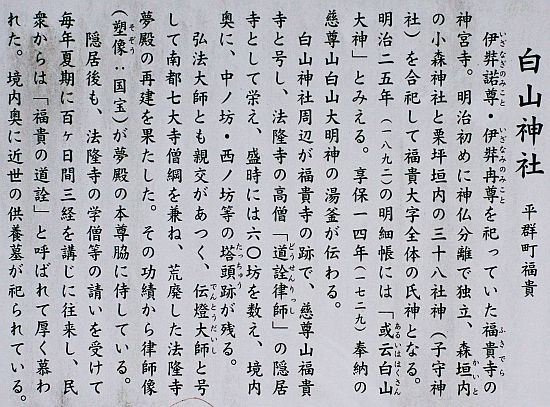 白山神社　平群町福貴
伊弉諾尊・伊弉冉尊を祀っていた福貴寺の
神宮寺。明治初めに神仏分離で独立、森垣内
の小森神社と栗坪垣内の三十八社神（子守神
社）を合祀して福貴大字全体の氏神となる。
明治二五年（一八九二）の明細帳には「或云白山
大神」とみえる。享保一四年（一七二九）奉納の
慈尊山白山大明神の湯釜が伝わる。
白山神社周辺が福貴寺の跡で、慈尊山福貴
寺と号し、法隆寺の高僧「道詮律師」の隠居
寺として栄え、盛時には六〇坊を数え、境内
奥に、中ノ坊・西ノ坊等の塔頭跡が残る。
弘法大師とも親交があつく、伝燈大師と号
して南都七大寺僧綱を兼ね、荒廃した法隆寺
夢殿の再建を果たした。その功績から律師像
（塑像：国宝）が夢殿の本尊脇に侍している。
隠居後も、法隆寺の学僧等の請いを受けて
毎年夏期に百ヶ日間三経を講じに往来し、民
衆からは「福貴の道詮」と呼ばれて厚く慕わ
れた。境内奥に近世の供養墓が祀られている。